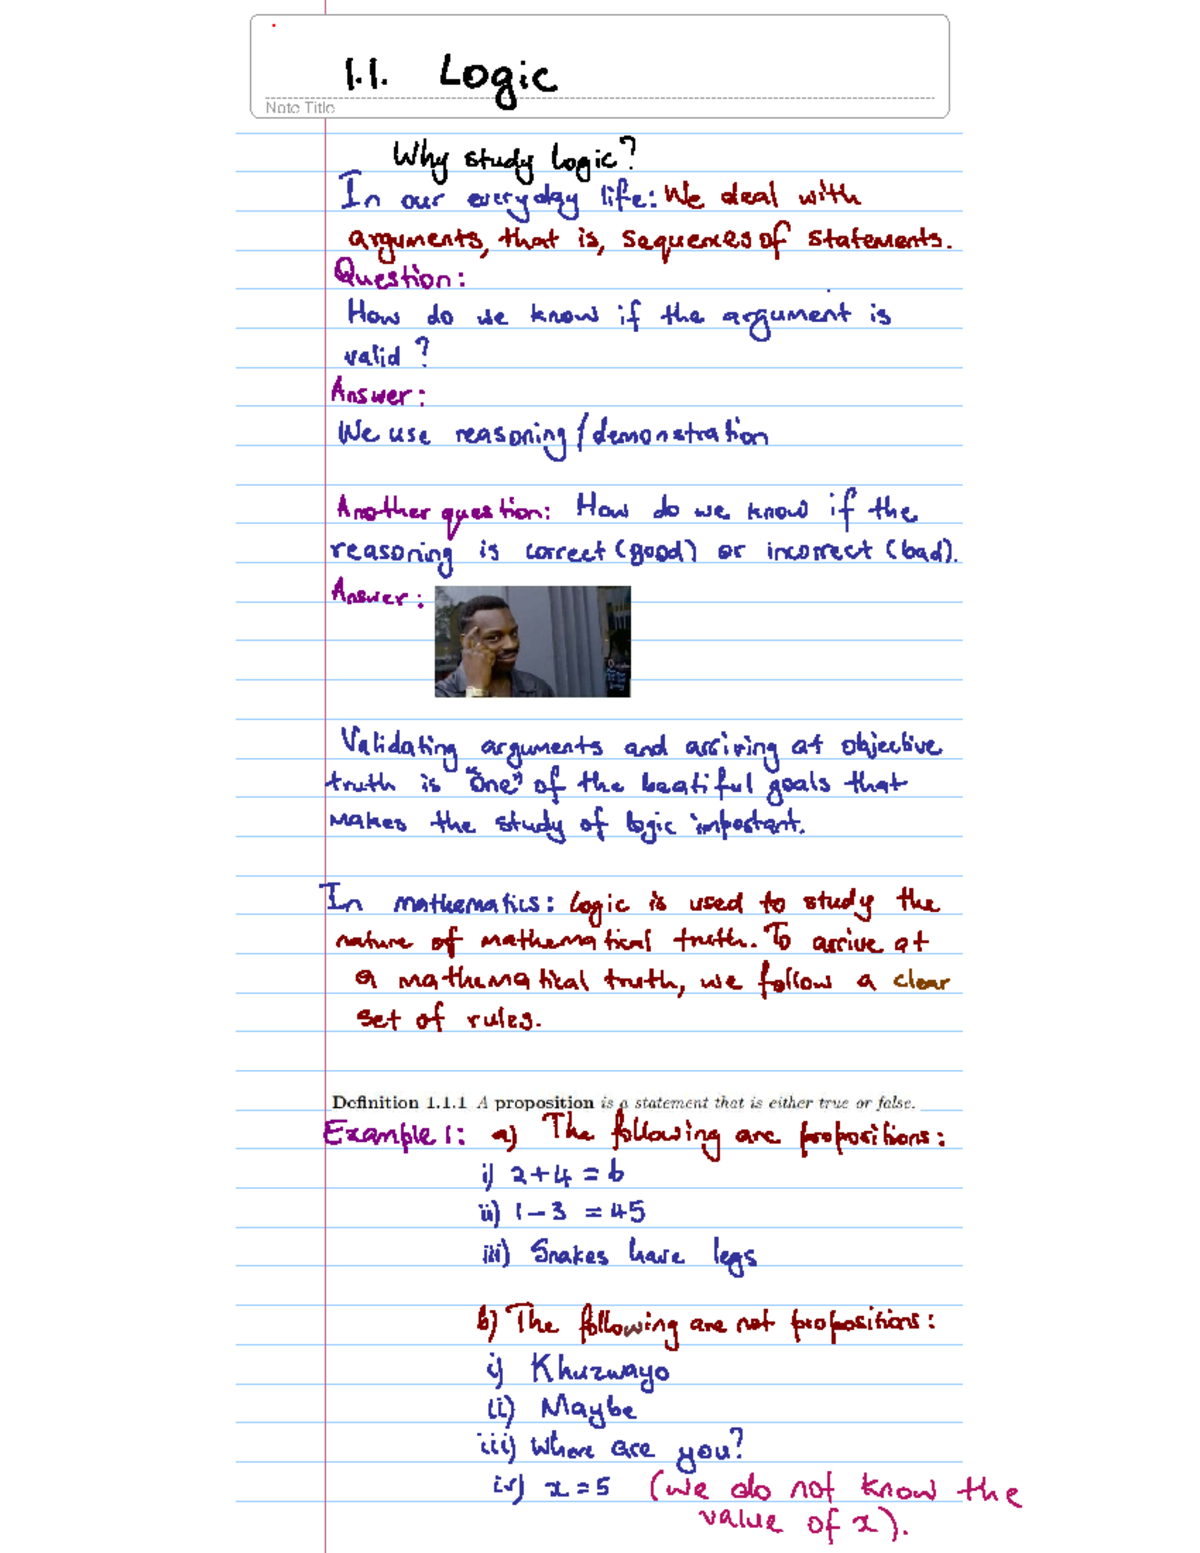 1.1. Logic
Note Title
Why study logic?
In our everyday life: We deal with
arguments, that is, sequences of statements.
Question:
How do we know if the argument is
valid ?
Answer:
We use reasoning/demonstration
Another question: How do we know if the
reasoning is correct (good) or incorrect (bad).
Answer:
Validating arguments and arriving at objective
truth is "One" of the beatiful goals that
makes the study of logic important.
In mathematics: Logic is used to study the
nature of mathematical truth. To arrive at
a mathematical truth, we follow a clear
set of rules.
Definition 1.1.1 A proposition is a statement that is either true or false.
Example 1: a) The following are propositions:
i) 2+4 = 6
ii) 1-3 = 45
iii) Snakes have legs
b) The following are not propositions:
i) Khuzwayo
(ii) Maybe
iii) Where are you?
iv) x = 5 (we do not know the
value of x).